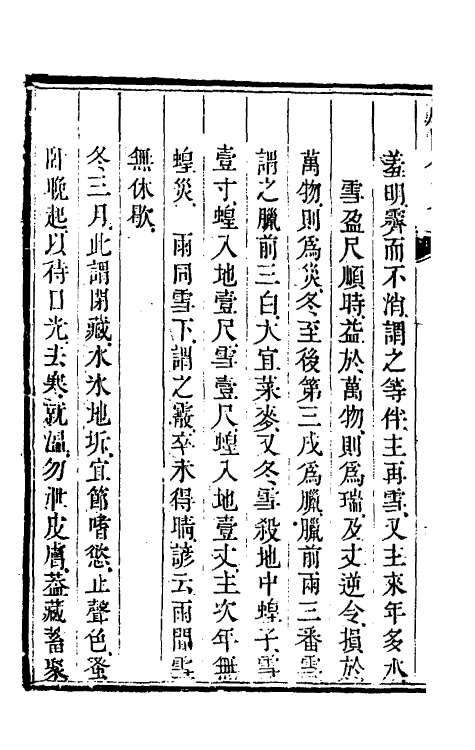 羞明霽而不消謂之等伴主再雪又主來年多水
雪盈尺順時益於萬物則爲瑞及丈逆令損於
萬物則爲災冬至後第三戌爲臘臘前兩三番雪
謂之臘前三白大宜菜麥又冬雪殺地中蝗子雪
壹寸蝗入地壹尺雪壹尺蝗入地壹丈主次年無
蝗災　雨同雪下謂之霰卒未得晴諺云雨間雪
無休歇
冬三月此謂閉藏水氷地坼宜節嗜慾止聲色蚤
臥晚起以待日光去寒就溫勿泄皮膚葢藏蓄聚